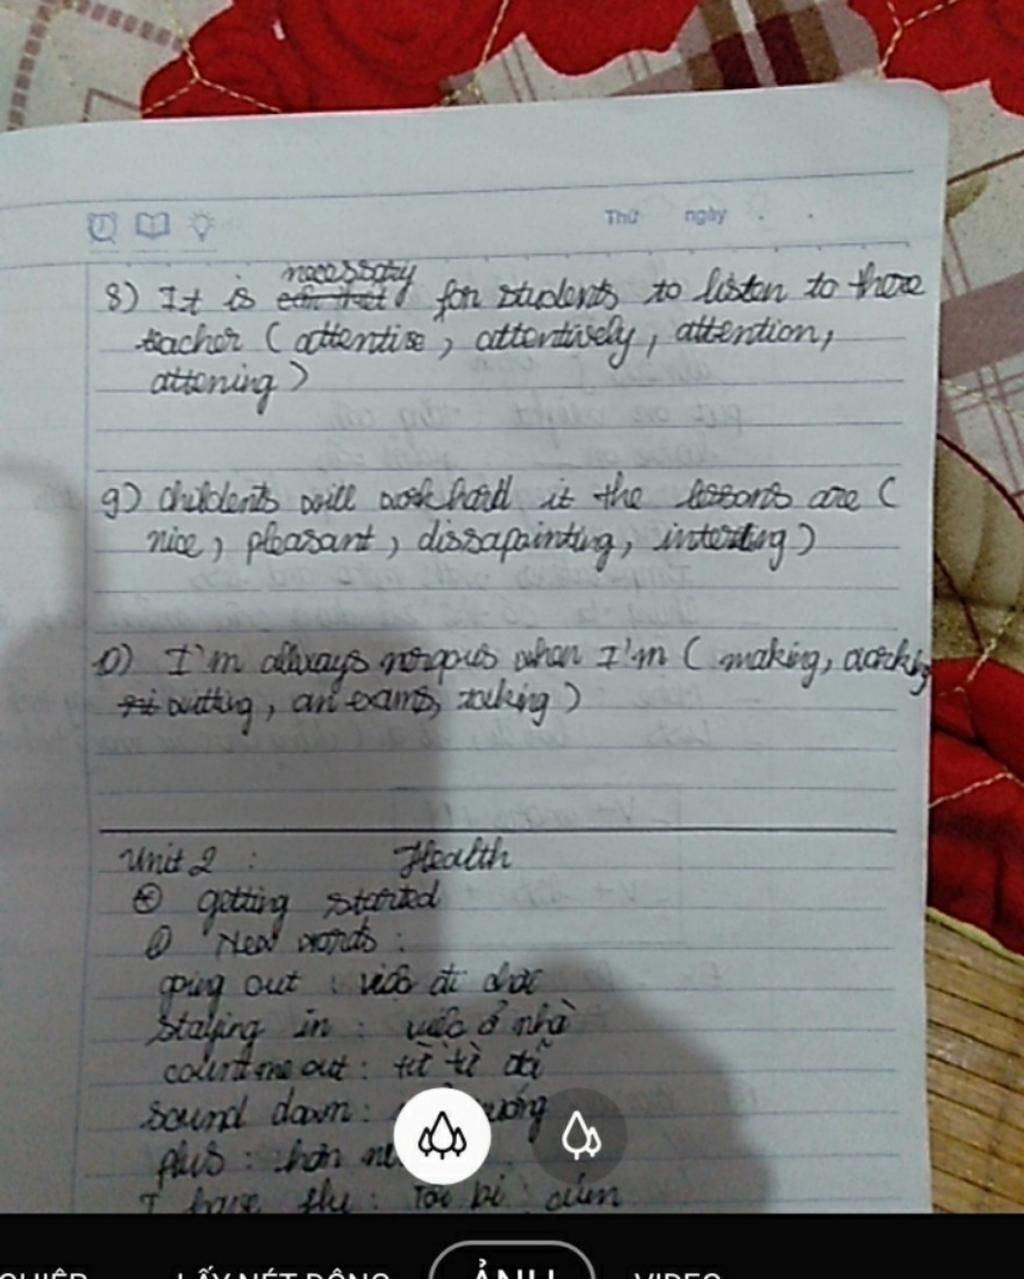 Thứ ngày
8) It is necessary for students to listen to there
teacher (attentise, attentively, attention,
attening)
9) childents will work hard it the lessons are (
nice, pleasant, dissapainting, interting)
10) I'm allways when I'm ( making, working
wutting, an exams, tacking)
Unit 2 : Health
getting started
New words :
going out : việc đi chơi
Staying in : việc ở nhà
count me out : từ từ đã
sound down :
plus : hơn
I have flu : Tôi bị cúm
LẤY NÉT ĐỘNG ẢNH VIDEO